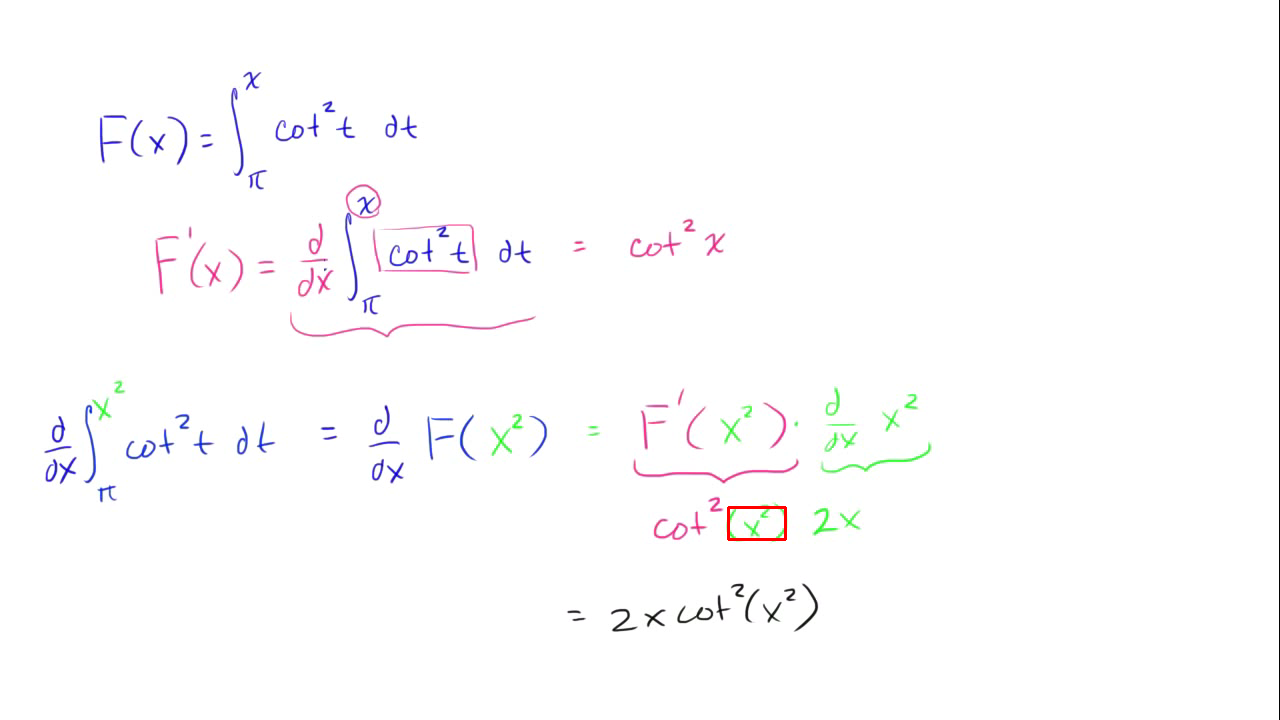 F(x) = ∫_π^x cot² t dt
F'(x) = d/dx ∫_π^x cot² t dt = cot² x
d/dx ∫_π^{x²} cot² t dt = d/dx F(x²) = F'(x²) · d/dx x²
cot² (x²) 2x
= 2x cot²(x²)